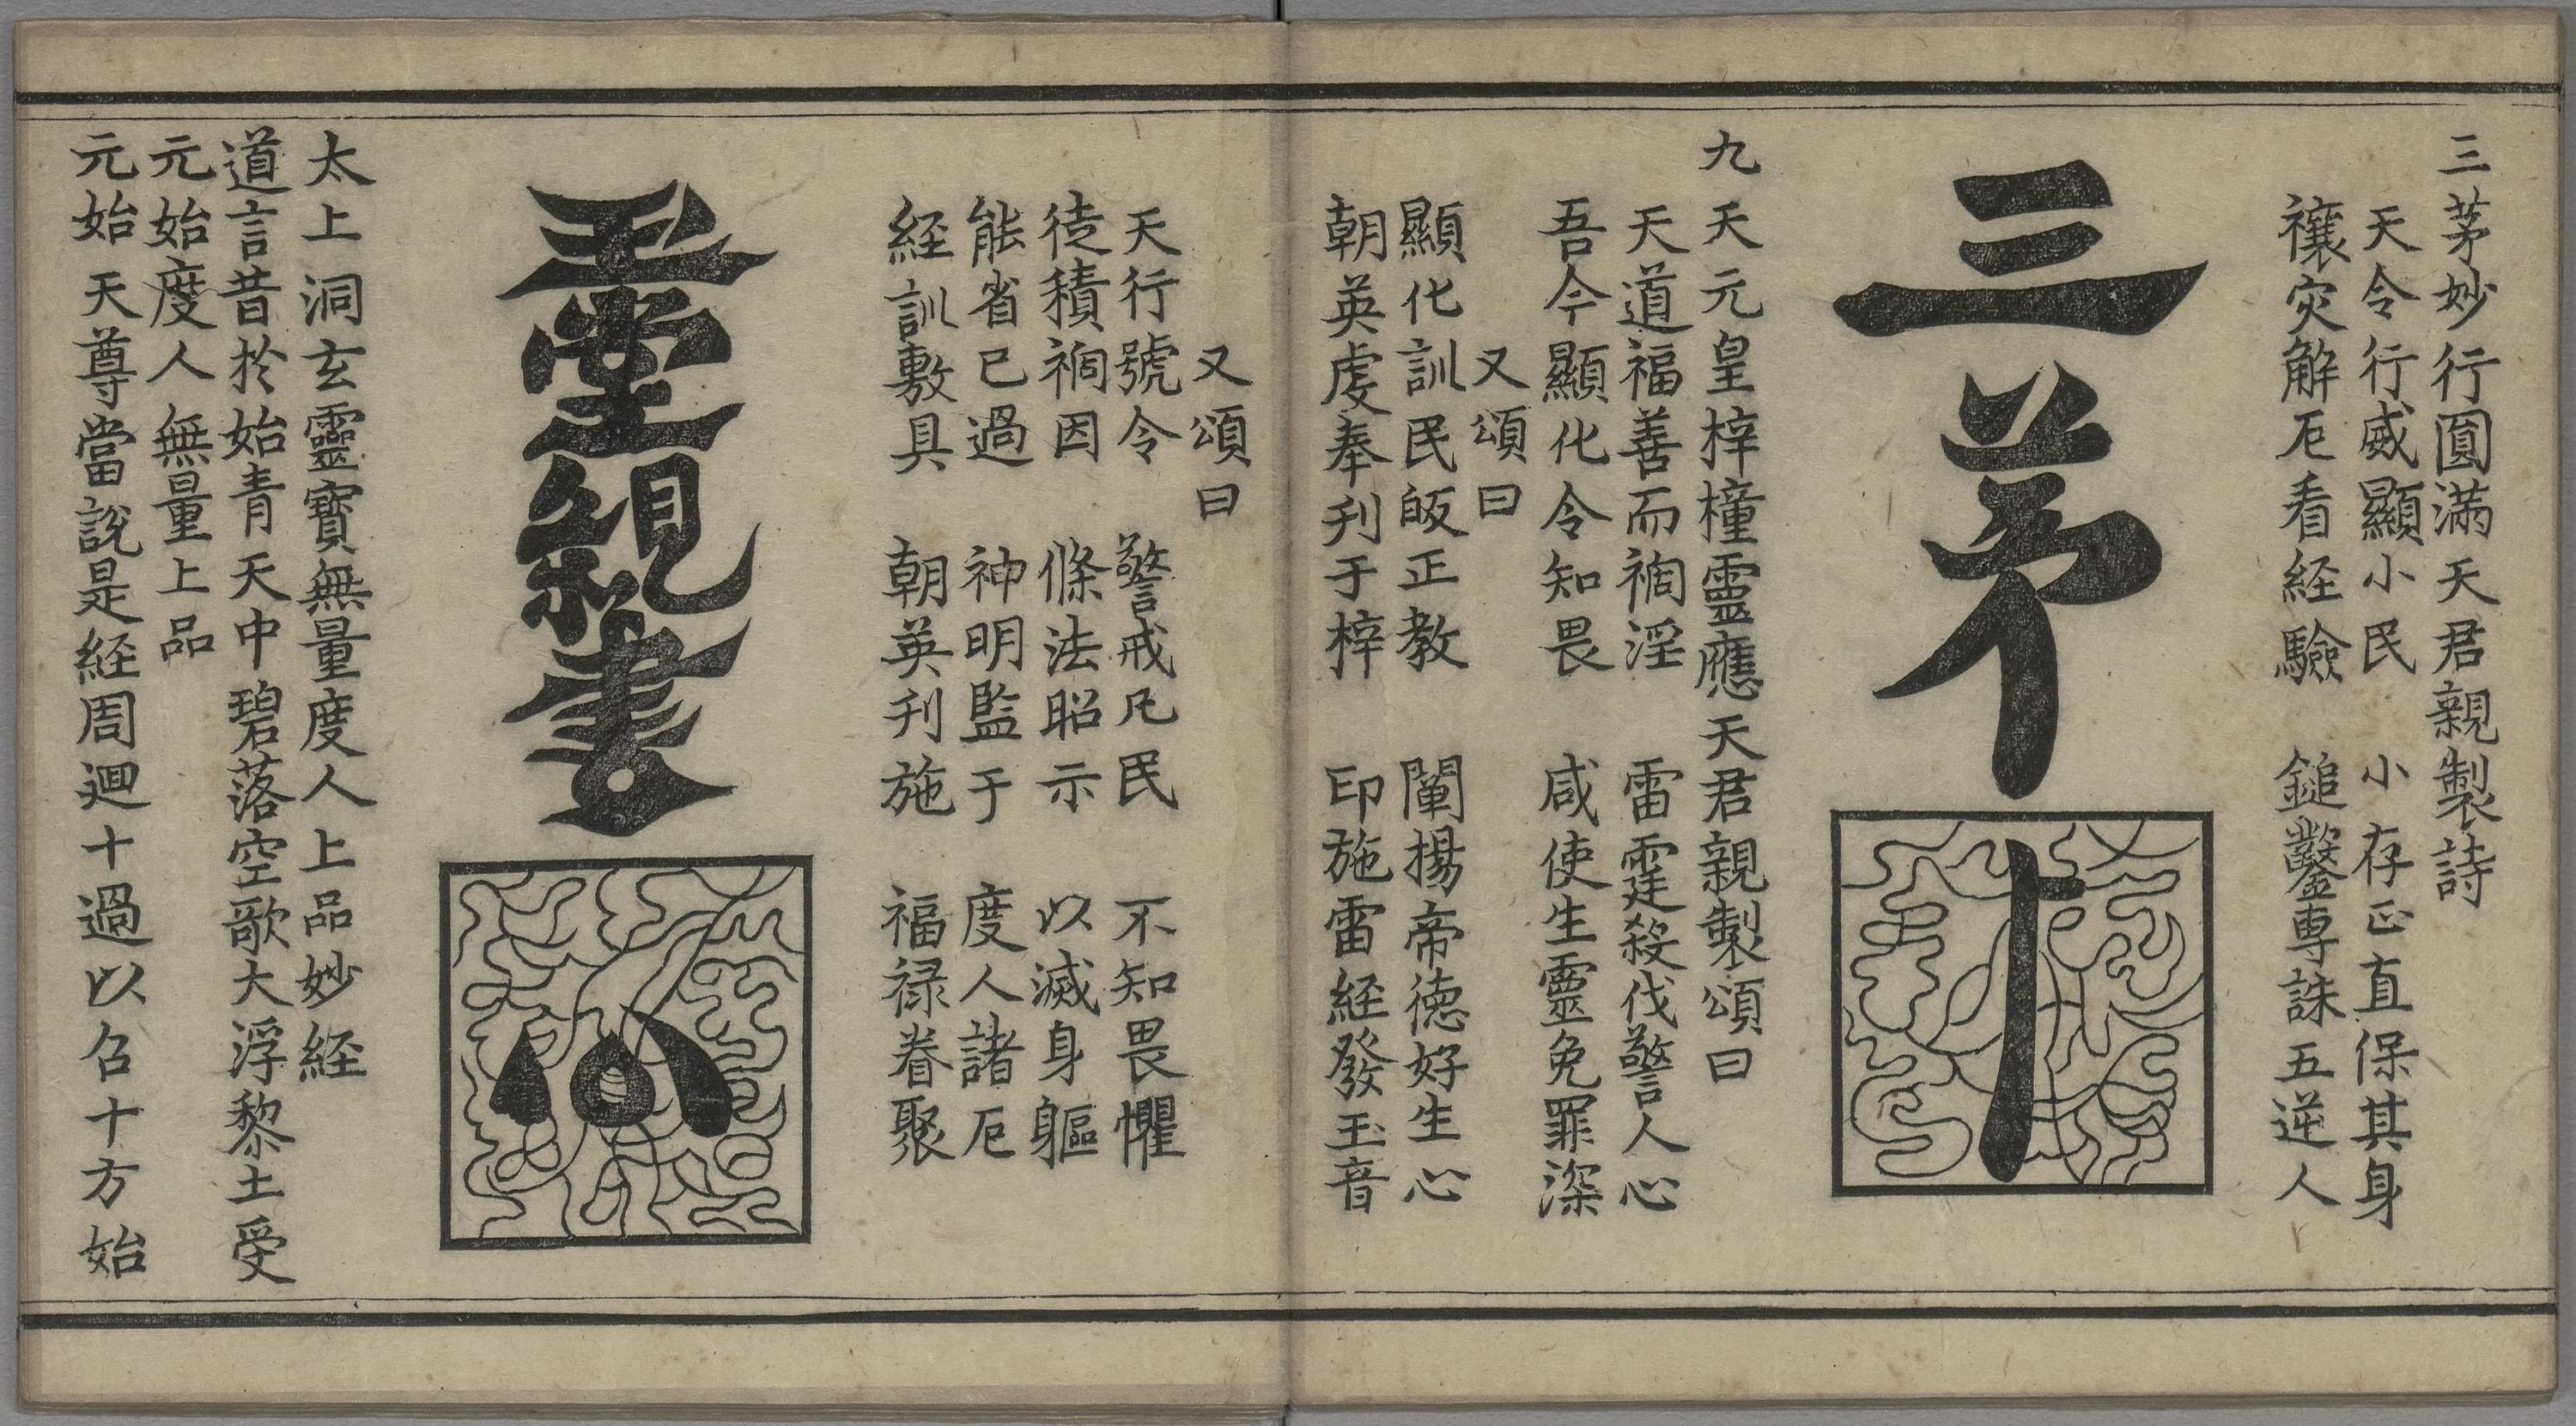 三茅妙行圎滿天君親製詩
天令行威顯小民　小存正直保其身
禳灾解厄看経驗　鎚鑿専誅五逆人
三茅
九天元皇梓橦靈應天君親製頌曰
天道福善而禍淫　雷霆殺伐警人心
吾今顯化令知畏　咸使生靈免罪深
又頌曰
顯化訓民皈正教　闡揚帝徳好生心
朝英虔奉刋于梓　印施雷経發玉音
又頌曰
天行號令　警戒凡民　不知畏懼
徒積禍因　條法昭示　以滅身軀
能省已過　神明監于　度人諸厄
経訓敷具　朝英刋施　福禄眷聚
玉堂親書
太上洞玄靈寶無量度人上品妙経
道言昔於始青天中碧落空歌大浮黎土受
元始度人無量上品
元始天尊當說是経周迴十過以召十方始